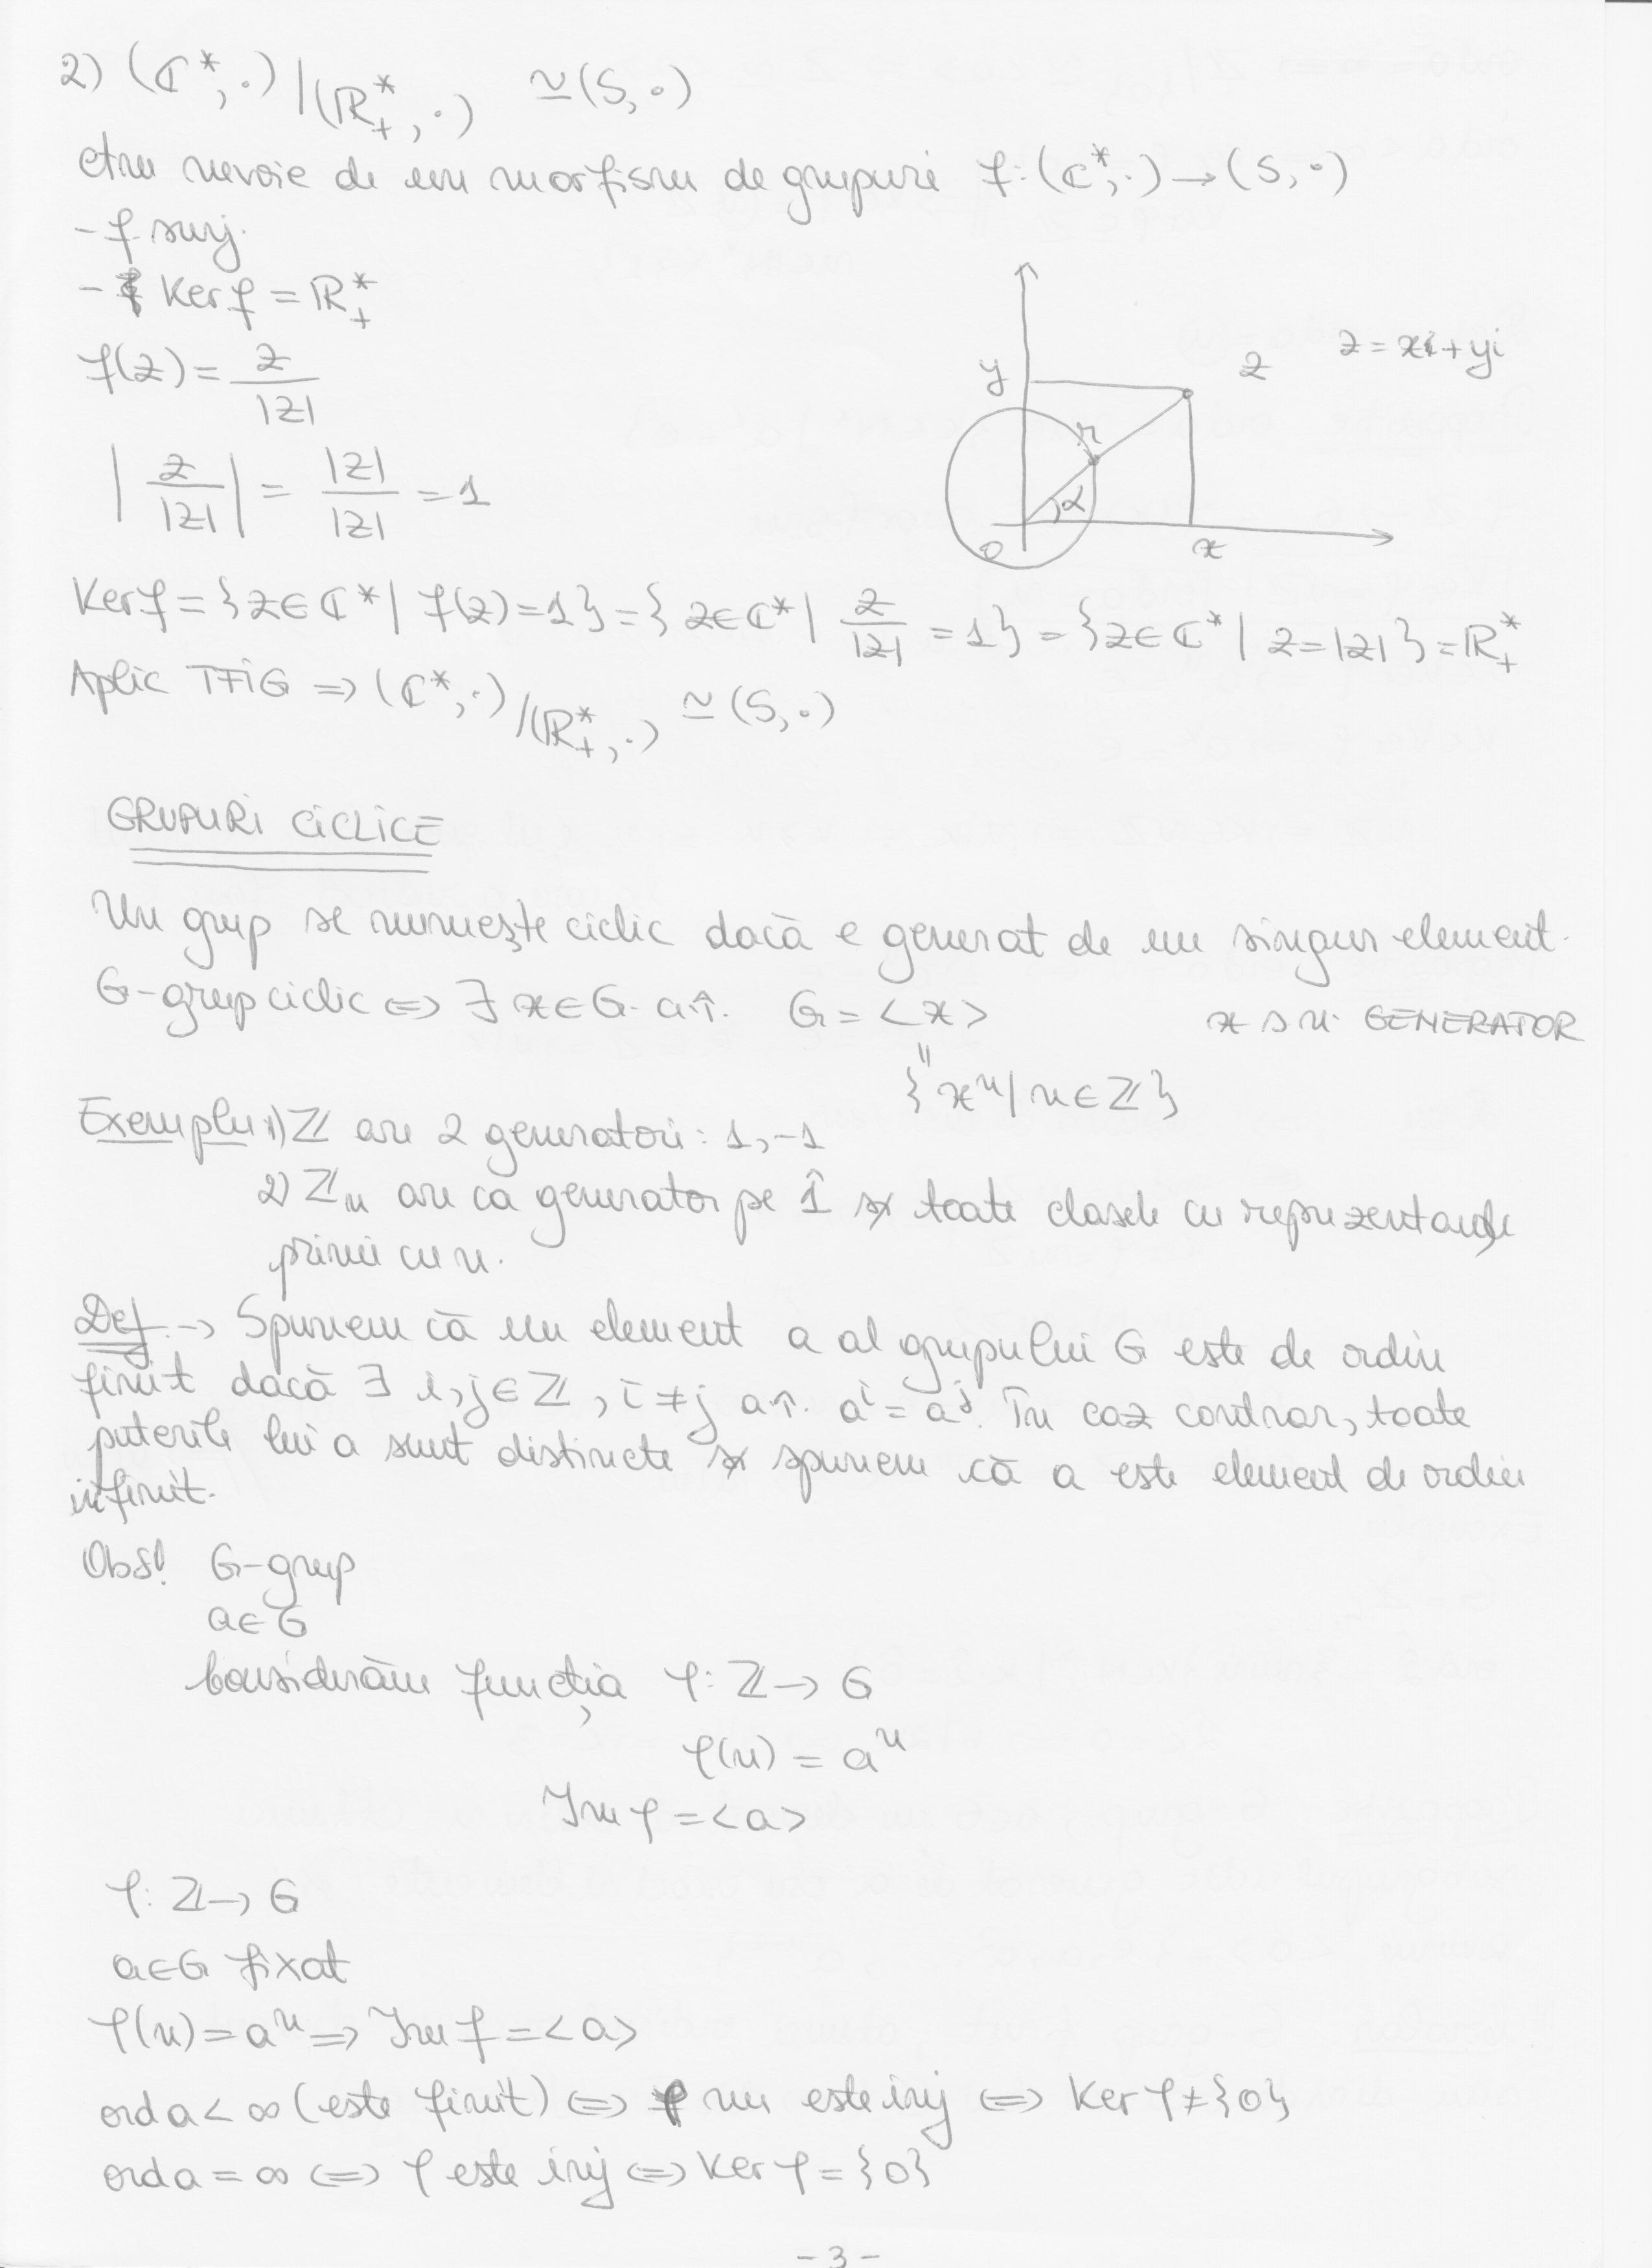 2) (ℂ*, ·) / (ℝ*₊, ·) ≃ (S, ·)
Am nevoie de un morfism de grupuri f: (ℂ*, ·) → (S, ·)
- f surj.
- Ker f = ℝ*₊
f(z) = z / |z|
y
z
z = x + yi
r
α
o
x
| z / |z| | = |z| / |z| = 1
Ker f = {z ∈ ℂ* | f(z) = 1} = {z ∈ ℂ* | z / |z| = 1} = {z ∈ ℂ* | z = |z|} = ℝ*₊
Aplic TFIG ⇒ (ℂ*, ·) / (ℝ*₊, ·) ≃ (S, ·)
GRUPURI CICLICE
Un grup se numește ciclic dacă e generat de un singur element.
G-grup ciclic ⇔ ∃ x ∈ G a.î. G = <x> x s.n. GENERATOR
" {xⁿ | n ∈ ℤ}
Exemplu 1) ℤ are 2 generatori: 1, -1
2) ℤₙ are ca generator pe 1̂ și toate clasele cu reprezentanți
primi cu n.
Def → Spunem că un element a al grupului G este de ordin
finit dacă ∃ i, j ∈ ℤ, i ≠ j a.î. aⁱ = aʲ. În caz contrar, toate
puterile lui a sunt distincte și spunem că a este element de ordin
infinit.
Obs! G-grup
a ∈ G
Considerăm funcția φ: ℤ → G
φ(n) = aⁿ
Im φ = <a>
φ: ℤ → G
a ∈ G fixat
φ(n) = aⁿ ⇒ Im f = <a>
ord a < ∞ (este finit) ⇔ φ nu este inj ⇔ Ker φ ≠ {0}
ord a = ∞ ⇔ φ este inj ⇔ Ker φ = {0}
- 3 -